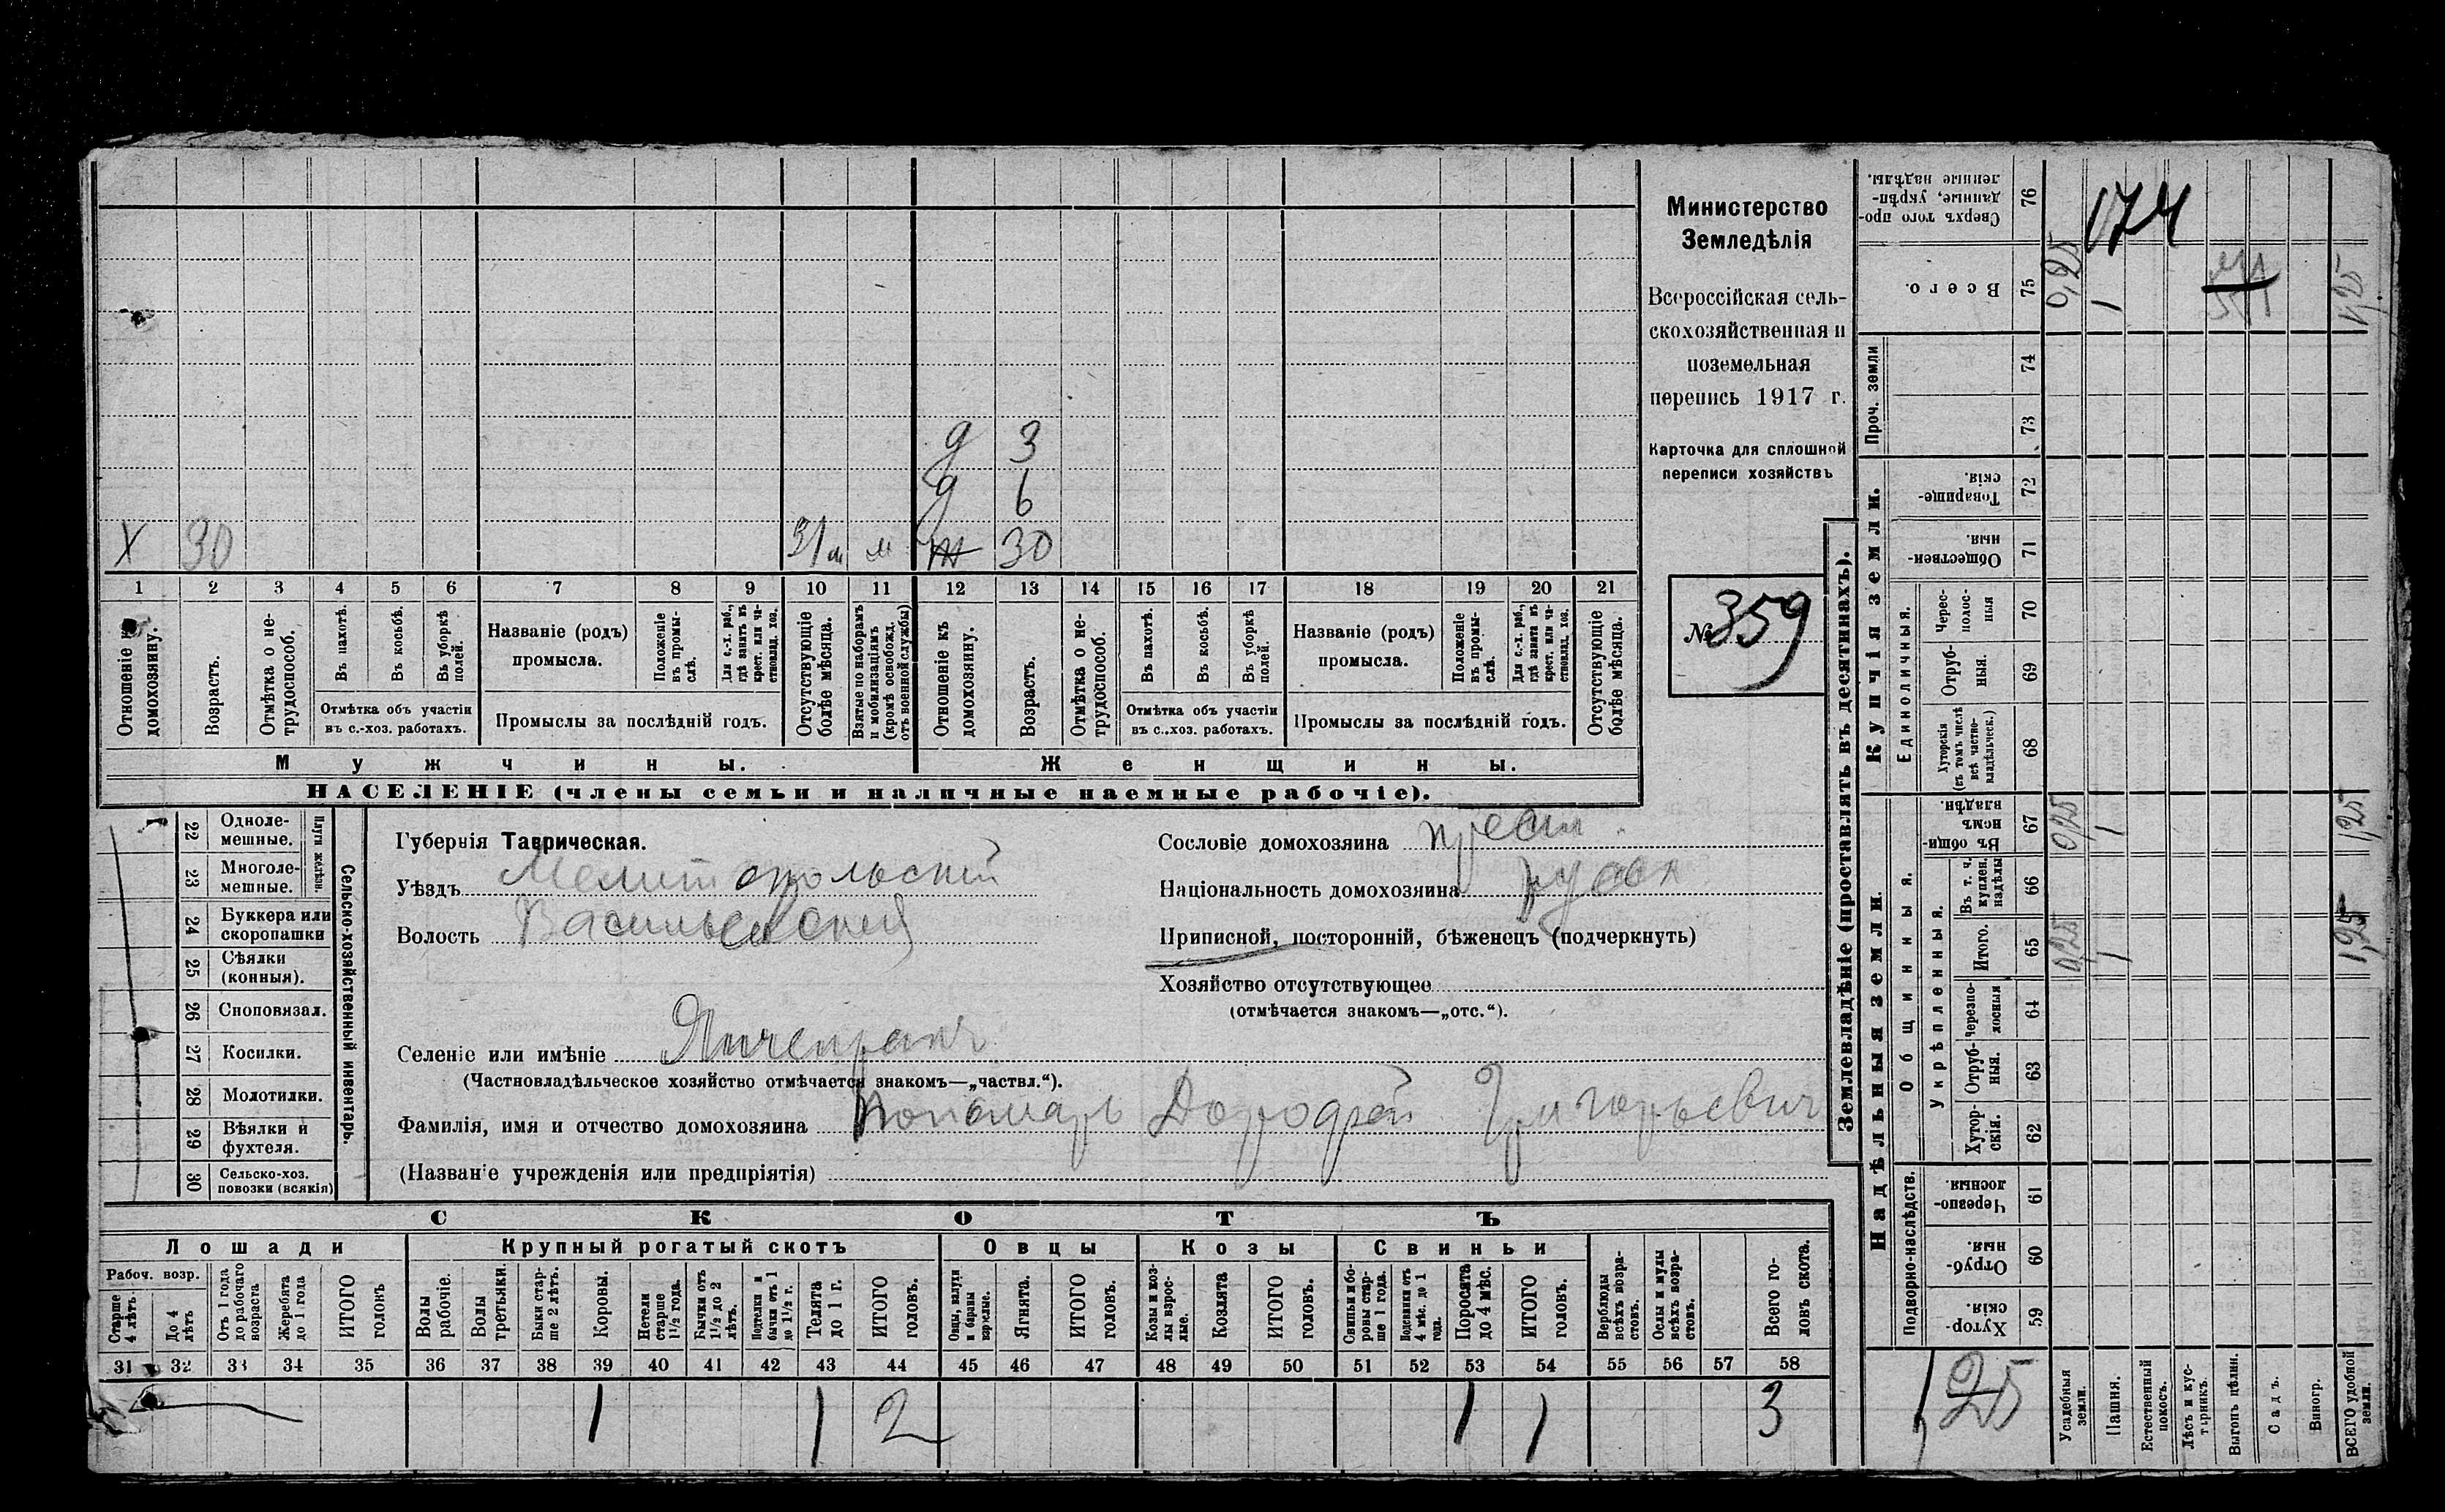 Министерство
Земледѣлія
Всероссійская сель-
скохозяйственная и
поземельная
перепись 1917 г.
Карточка для сплошной
переписи хозяйствъ
№ 359
д 3
д 6
Х 30 31 м м ж 30
1 2 3 4 5 6 7 8 9 10 11 12 13 14 15 16 17 18 19 20 21
Отношеніе къ домохозяину.
Возрастъ.
Отмѣтка о не-трудоспособ.
Въ пахотѣ.
Въ косьбѣ.
Въ уборкѣ полей.
Отмѣтка объ участіи
въ с.-хоз. работахъ.
Названіе (родъ)
промысла.
Положеніе въ промы-слѣ.
Для с.-х. раб., гдѣ занятъ въ крест. или ча-стновлад. хоз.
Промыслы за послѣдній годъ.
Отсутствующіе болѣе мѣсяца.
Взятые по наборамъ и мобилизаціямъ (кромѣ освобожд. отъ военной службы)
Отношеніе къ домохозяину.
Возрастъ.
Отмѣтка о не-трудоспособ.
Въ пахотѣ.
Въ косьбѣ.
Въ уборкѣ полей.
Отмѣтка объ участіи
въ с..хоз. работахъ.
Названіе (родъ)
промысла.
Положеніе въ промы-слѣ.
Для с.-х. раб., гдѣ занята въ крест. или ча-стновлад. хоз.
Промыслы за послѣдній годъ.
Отсутствующіе болѣе мѣсяца.
Мужчины. Женщины.
НАСЕЛЕНІЕ (члены семьи и наличные наемные рабочіе).
22 Одноле-мешные.
23 Многоле-мешные.
Плуги желѣзн.
24 Буккера или скоропашки
25 Сѣялки (конныя).
26 Сноповязал.
27 Косилки.
28 Молотилки.
29 Вѣялки и фухтеля.
30 Сельско-хоз. повозки (всякія)
Сельско-хозяйственный инвентарь.
Губернія Таврическая.
Уѣздъ Мелитопольскій
Волость Васильевская
Селеніе или имѣніе Янчекракъ
(Частновладѣльческое хозяйство отмѣчается знакомъ—„частвл.“).
Фамилія, имя и отчество домохозяина Пономарь Дорофей Григорьевич
(Названіе учрежденія или предпріятія)
Сословіе домохозяина крест.
Національность домохозяина русск
Приписной, посторонній, бѣженецъ (подчеркнуть)
Хозяйство отсутствующее
(отмѣчается знакомъ—„отс.“).
СКОТЪ
Лошади Крупный рогатый скотъ Овцы Козы Свиньи
Рабоч. возр.
Старше 4 лѣтъ.
До 4 лѣтъ
Отъ 1 года до рабочаго возраста
Жеребята до 1 года
ИТОГО головъ
Волы рабочіе.
Волы третьяки.
Быки стар-ше 2 лѣтъ.
Коровы.
Нетели старше 1½ года.
Бычки отъ 1½ до 2 лѣтъ.
Подтелки и бычки отъ 1 до 1½ г.
Телята до 1 г.
ИТОГО головъ.
Овцы, валухи и бараны взрослые.
Ягнята.
ИТОГО головъ.
Козы и коз-лы взрос-лые.
Козлята
ИТОГО головъ.
Свиньи и бо-ровы стар-ше 1 года.
Подсвинки отъ 4 мѣс. до 1 года.
Поросята до 4 мѣс.
ИТОГО головъ.
Верблюды всѣхъ возра-стовъ.
Ослы и мулы всѣхъ возра-стовъ.
Всего го-ловъ скота.
31 32 33 34 35 36 37 38 39 40 41 42 43 44 45 46 47 48 49 50 51 52 53 54 55 56 57 58
1 1 2 1 1 3
Землевладѣніе (проставлять въ десятинахъ).
Надѣльныя земли. Купчія земли. Проч. земли
Подворно-наслѣдств.
Общинныя.
Укрѣпленныя.
Единоличныя.
59 Хутор-скія.
60 Отруб-ныя.
61 Черезпо-лосныя
62 Хутор-скія.
63 Отруб-ныя.
64 Черезпо-лосныя
65 Итого.
66 Въ т. ч. куплен. надѣлы
67 Въ общи-номъ владѣн.
68 Хуторскія (въ томъ числѣ всѣ частно-владѣльческ.)
69 Отруб-ныя.
70 Черес-полос-ныя
71 Обществен-ныя.
72 Товарище-скія.
73
74
75 Всего.
76 Сверхъ того про-данные, укрѣп-ленные надѣлы.
Усадебныя земли. 0,25 0,25 0,25
Пашня. 1 1 1
Естественный покосъ.
Лѣсъ и кус-тарникъ.
Выгонъ цѣлин.
Садъ.
Виногр.
ВСЕГО удобной земли. 1,25 1,25 1,25
174
1,25